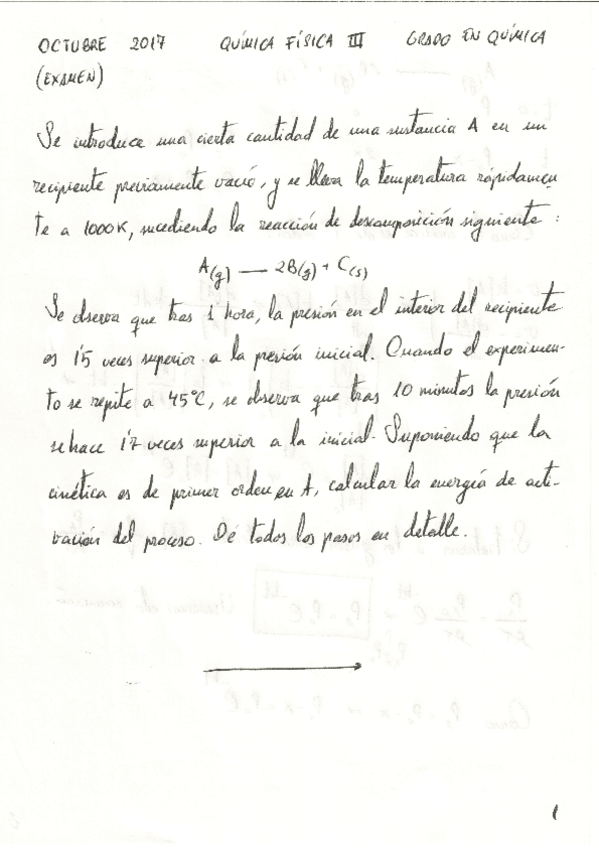 OCTUBRE 2017 QUÍMICA FÍSICA III GRADO EN QUÍMICA
(EXAMEN)
Se introduce una cierta cantidad de una sustancia A en un
recipiente previamente vació, y se lleva la temperatura rápidamen
te a 1000K, sucediendo la reacción de descomposición siguiente:
A(g) — 2B(g) + C(s)
Se observa que tras 1 hora, la presión en el interior del recipiente
es 1'5 veces superior a la presión inicial. Cuando el experimen-
to se repite a 45°C, se observa que tras 10 minutos la presión
se hace 1'7 veces superior a la inicial. Suponiendo que la
cinética es de primer orden en A, calcular la energía de acti-
vación del proceso. De todos los pasos en detalle.
1